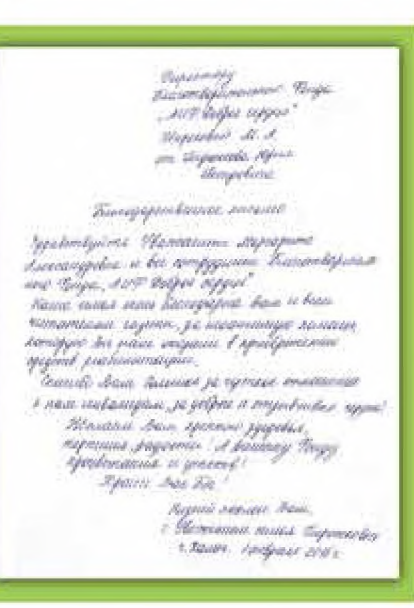 Директору
Благотворительного Фонда
„АИФ Доброе сердце"
М. А.
от Юрия
Петровича
Благодарственное письмо
Здравствуйте Уважаемая Маргарита
Александровна и все сотрудники Благотворитель
ного Фонда „АИФ Доброе сердце"
Наша семья очень благодарна вам и всем
читателям газеты, за помощь,
которую Вы нам оказали в приобретении
средств реабилитации.
Спасибо Вам большое за чуткое отношение
к нам инвалидам, за доброе и отзывчивое сердце!
Желаем Вам крепкого здоровья,
радости! А вашему Фонду
процветания и успехов!
Храни Вас Бог!
Низкий поклон Вам,
с Уважением семья
г. февраля